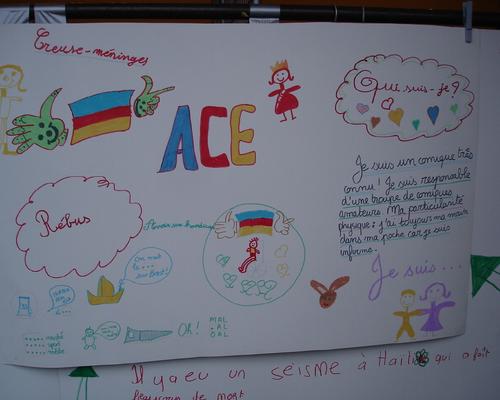 Creuse-méninges
ACE
Que suis-je?
Je suis un comique très
connu! Je suis responsable
d'une troupe de comiques
amateurs. Ma particularité
physique: j'ai toujours ma main
dans ma poche car je suis
infirme.
Je suis...
Rébus
On met
le ...
OH!
MAL
Il y a eu un séisme à Haïti qui a fait
beaucoup de mort